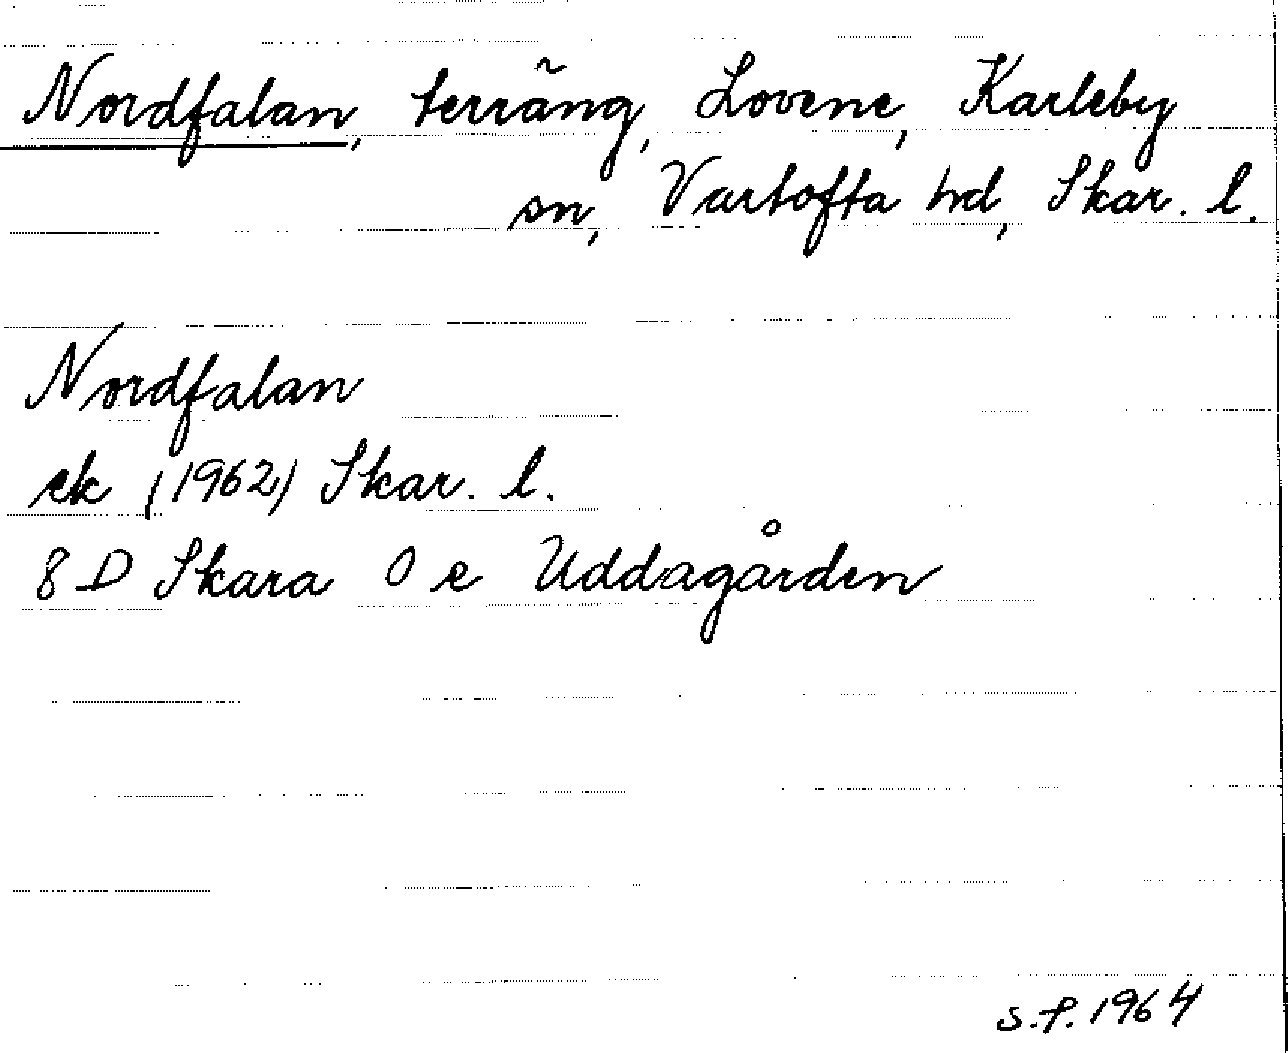 Nordfalan, terräng, Lovene, Karleby
sn, Vartofta hd, Skar. l.
Nordfalan
ek (1962) Skar. l.
8 D Skara 0 e Uddagården
S.F. 1964